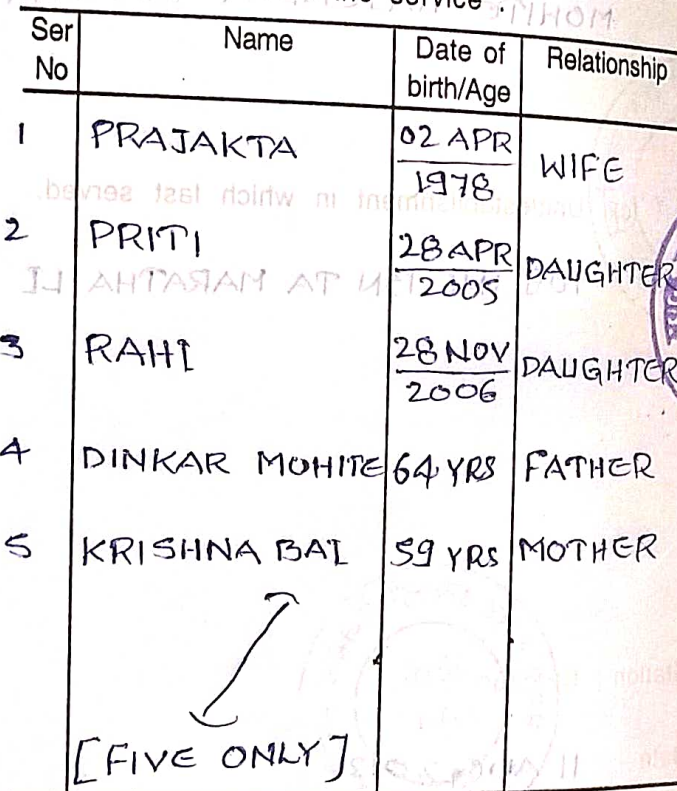 Ser No Name Date of birth/Age Relationship
1 PRAJAKTA 02 APR 1978 WIFE
2 PRITI 28 APR 2005 DAUGHTER
3 RAHI 28 NOV 2006 DAUGHTER
4 DINKAR MOHITE 64 YRS FATHER
5 KRISHNA BAI 59 YRS MOTHER
[FIVE ONLY]